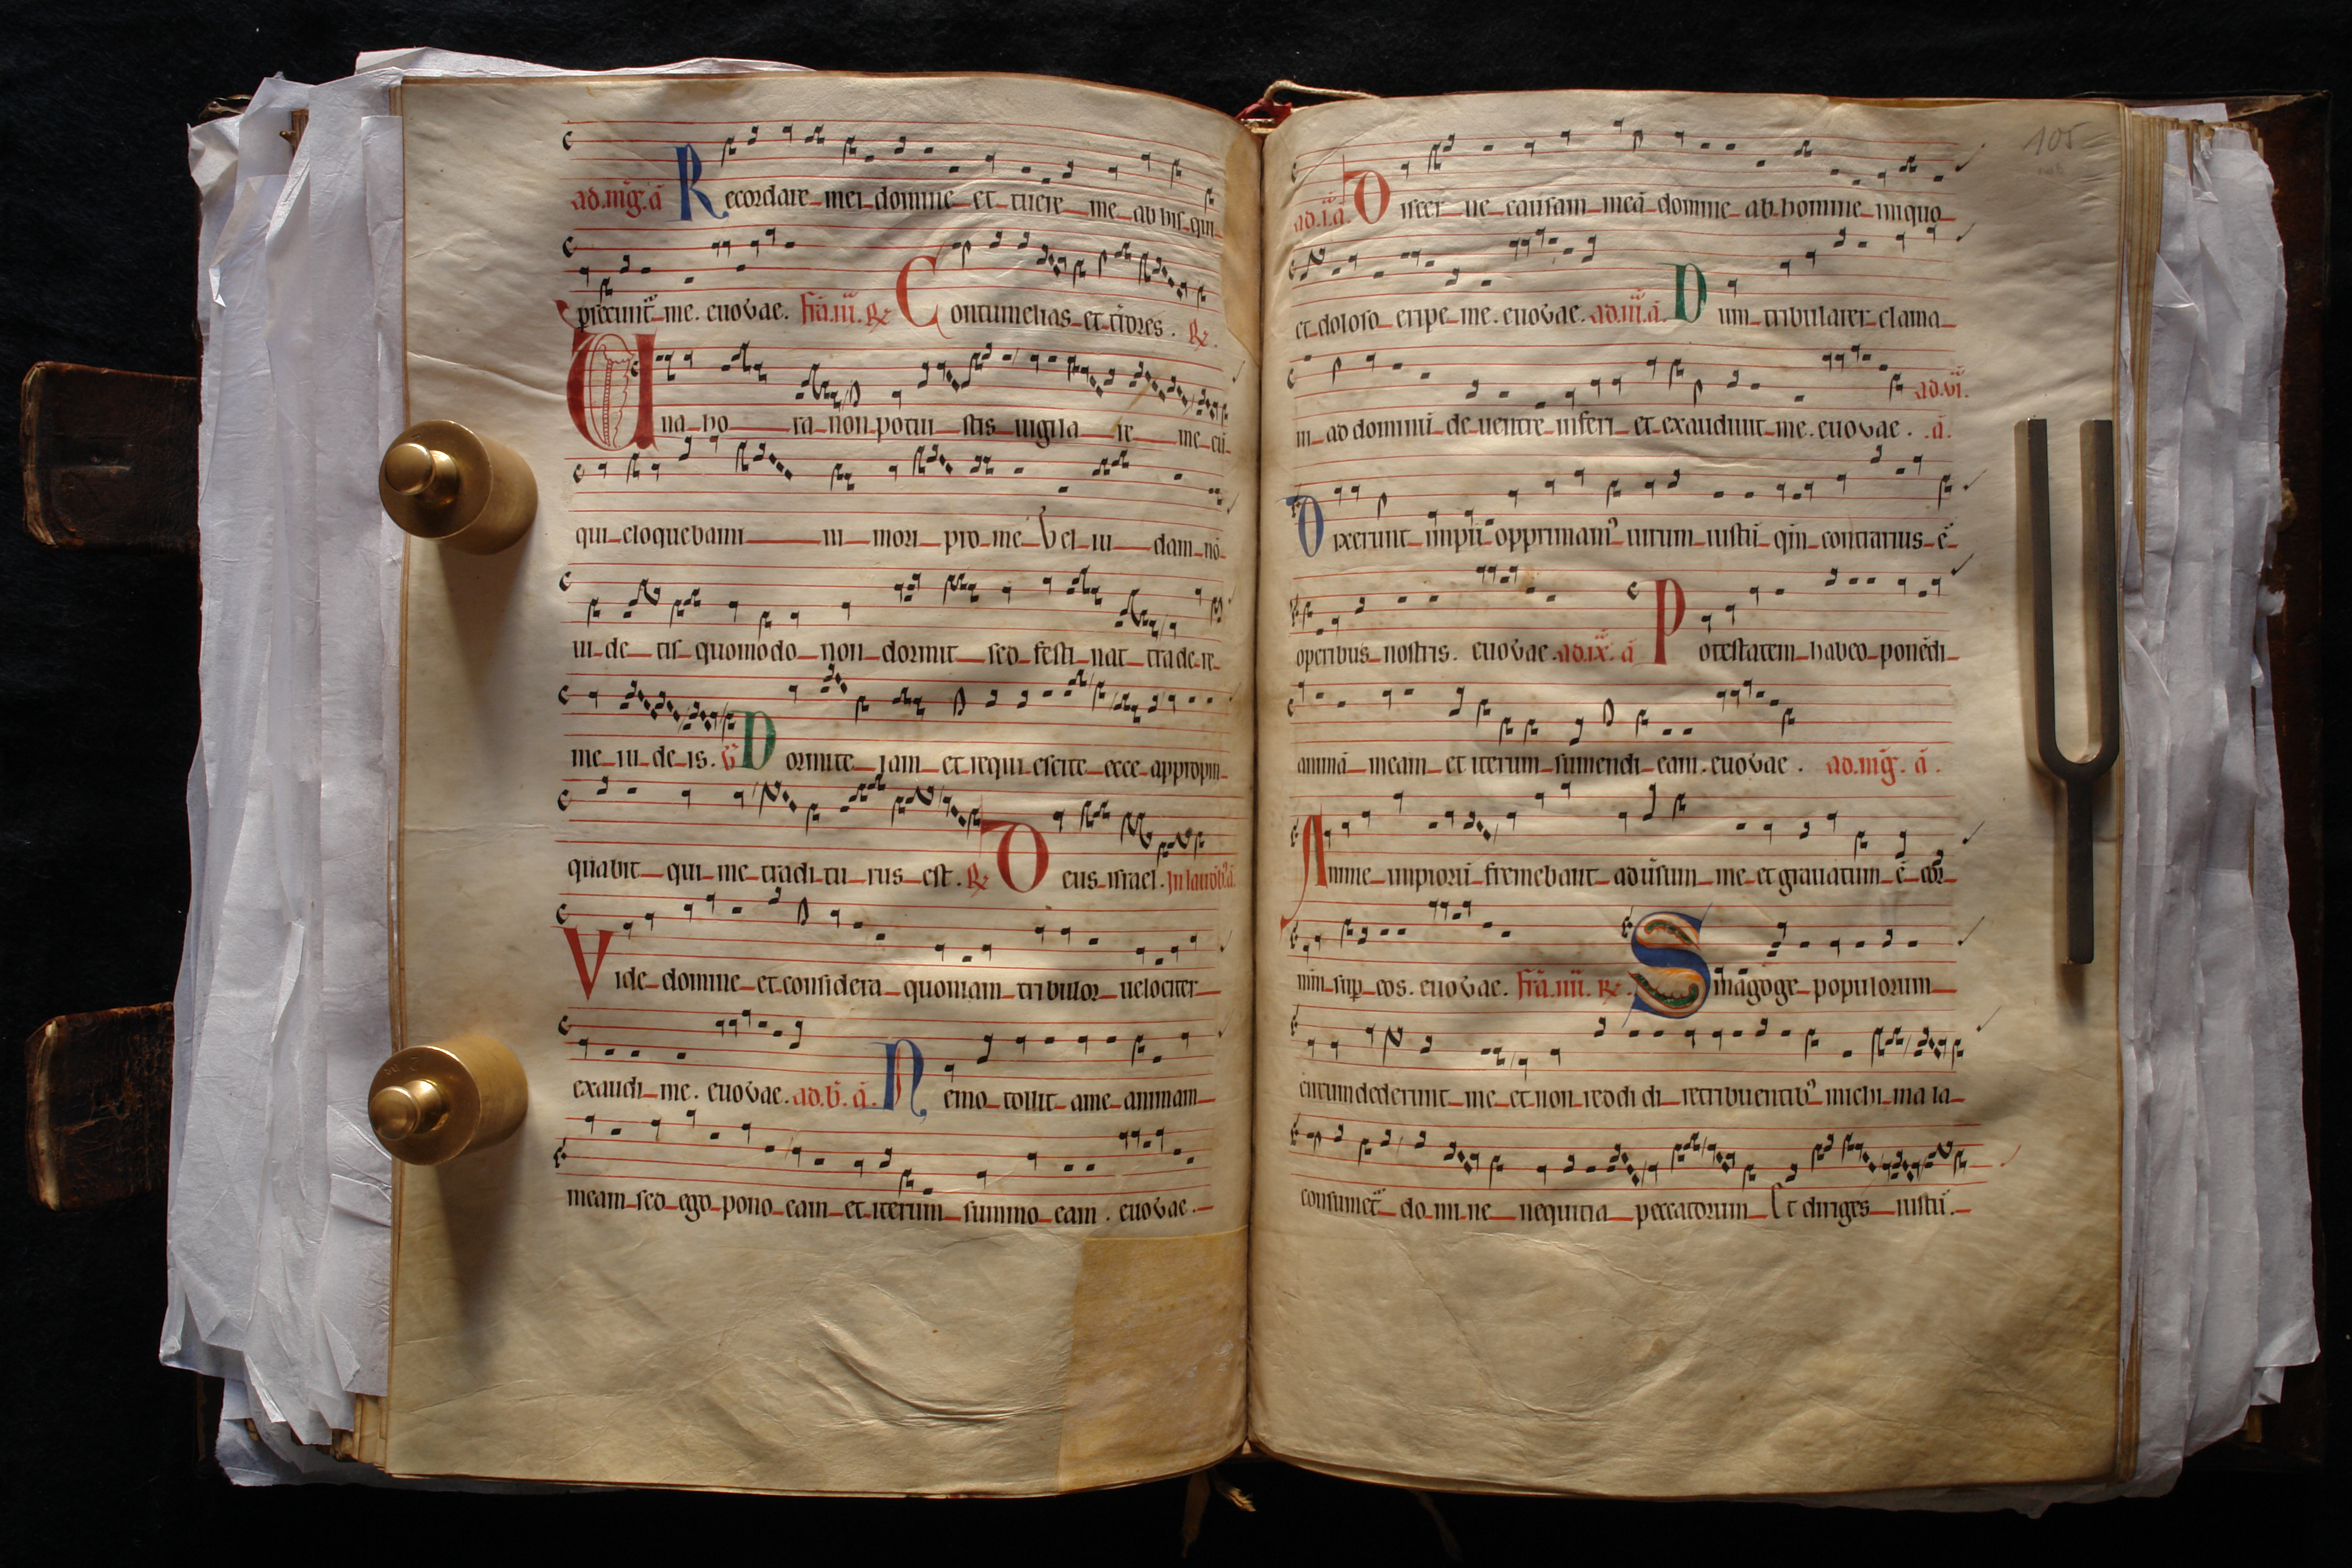 ad.mḡ.ā Recordare mei domine et tuere me ab his qui
persecunt me. euovae. fr̄a.iii. ℟ Contumelias et t̄rores. ℟.
Una ho ra non potui stis uigila re me cū
qui eloquebami ni mori pro me Vel iu dam nō
ui de tis quomodo non dormit sed festi nat trade re
me iu de is. ℣ Dormite iam et requi escite ecce appropin
quabit qui me tradi tu rus est. ℟ Deus israel. In laud
Vide domine et considera quoniam tribulor uelociter
exaudi me. euovae. ad.b̄.ā. Nemo tollit a me animam
meam sed ego pono eam et iterum summo eam. euovae.
105
ad.i.ā. Discer ne causam meā domine ab homine iniquo
et doloso eripe me. euovae. ad.iii.ā. Dum tribularer clama
ui ad dominū de uentre inferi et exaudiuit me. euovae. ad.vi.
.ā.
Dixerunt impii opprimam᾽ uirum iustū qm̄ contrarius ē
operibus nostris. euovae. ad.ix.ā Potestatem habeo ponēdi
animā meam et iterum sumendi eam. euovae. ad.mḡ.ā.
Anime impiorū fremebant aduersum me et grauatum ē cor
mm̄ sup eos. euovae. fr̄a.iiii. ℟. Sinagoge populorum
circumdederunt me et non reddi di retribuentib᾽ michi ma la
consumet᾽ do mi ne nequitia peccatorum Et diriges iustū.